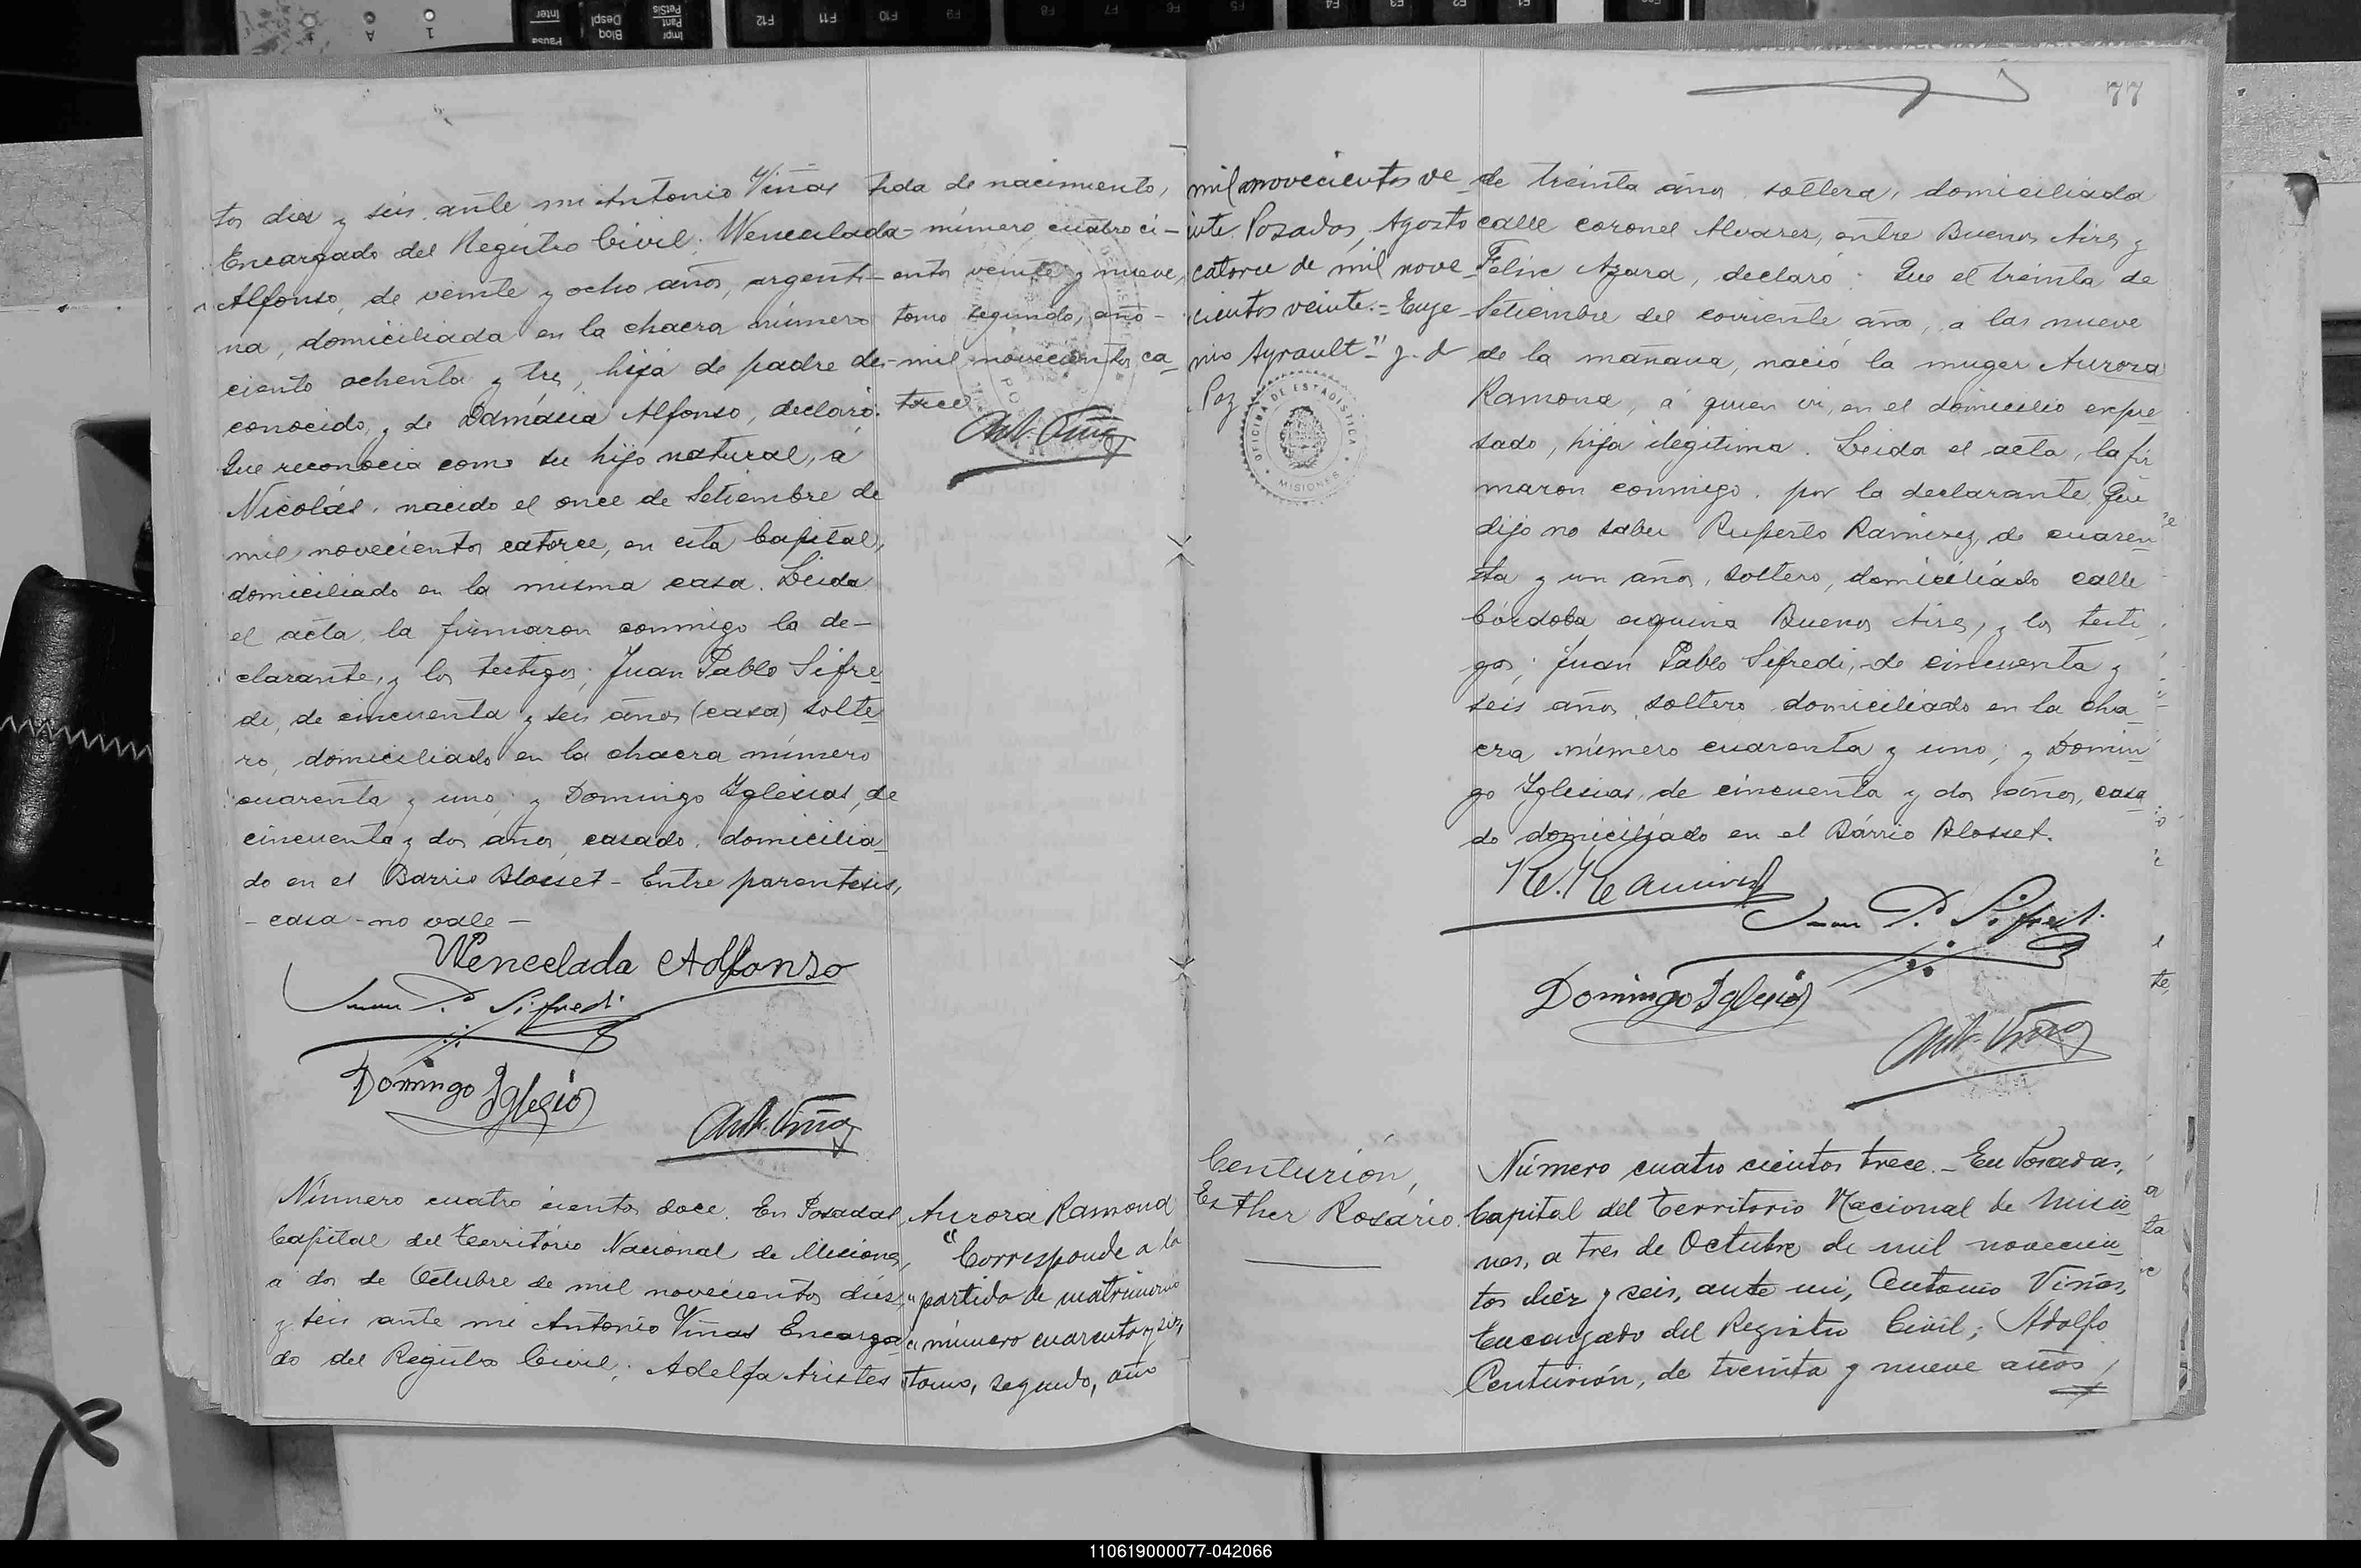 77
tos diez y seis, ante mi Antonio Viñas
Encargado del Registro Civil: Wencelada
Alfonso, de veinte y ocho años, argenti-
na, domiciliada en la chacra número
ciento ochenta y tres, hija de padre des-
conocido, y de Damasia Alfonso, declaró:
Que reconocia como su hijo natural, a
Nicolás, nacido el once de Setiembre de
mil novecientos catorce, en esta Capital,
domiciliado en la misma casa. Leida
el acta, la firmaron conmigo la de-
clarante, y los testigos; Juan Pablo Sifre-
di, de cincuenta y seis años (casa) solte-
ro, domiciliado en la chacra número
cuarenta y uno; y Domingo Iglesias, de
cincuenta y dos años, casado, domicilia-
do en el Barrio Blosset - Entre parentesis,
- casa - no vale -
Wencelada Alfonso
Juan P. Sifredi
Domingo Iglesias
Ant. Viñas
tida de nacimiento,
número cuatro ci-
entos veinte y nueve,
tomo segundo, año
mil novecientos ca-
torce
Ant. Viñas
Número cuatro cientos doce. En Posadas,
Capital del Territorio Nacional de Misiones,
a dos de Octubre de mil novecientos diez
y seis ante mi Antonio Viñas Encarga-
do del Registro Civil; Adelfa Aristes
Aurora Ramona
"Corresponde a la
"partida de matrimonio
" número cuarenta y seis,
"tomo, segundo, año
mil novecientos ve-
inte. Posadas, Agosto
catorce de mil nove-
cientos veinte.- Euge-
nio Ayrault" J. de
Paz
OFICINA DE ESTADISTICA
MISIONES
de treinta años soltera, domiciliada
calle coronel Alvarez, entre Buenos Aires y
Felix Azara, declaró: Que el treinta de
Setiembre del corriente año, a las nueve
de la mañana, nació la muger Aurora
Ramona, á quien vi, en el domicilio expre
sado, hija ilegitima. Leida el acta, la fir
maron conmigo, por la declarante que
dijo no saber Ruperto Ramirez, de cuaren-
ta y un años, soltero, domiciliado calle
Córdoba esquina Buenos Aires, y los testi
gos; Juan Pablo Sifredi, de cincuenta y
seis años, soltero domiciliado en la cha-
cra número cuarenta y uno; y Domin-
go Iglesias, de cincuenta y dos años, casa
do domiciliado en el Bárrio Blosset.
R. Ramirez
Juan P. Sifredi
Domingo Iglesias
Ant. Viñas
Centurión,
Esther Rosário.
Número cuatro cientos trece.- En Posadas,
Capital del Territorio Nacional de Misio-
nes, a tres de Octubre de mil novecien-
tos diez y seis, ante mi, Antonio Viñas,
Encargado del Registro Civil; Adolfo
Centurión, de treinta y nueve años,
110619000077-042066